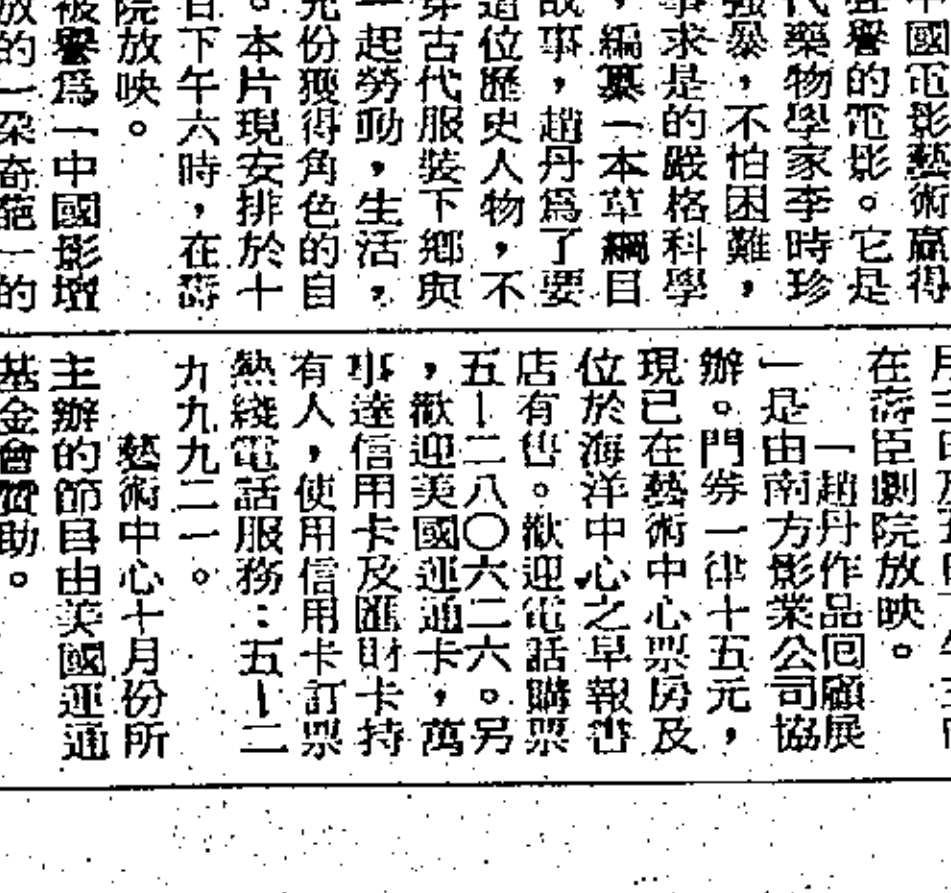 中國電影藝術贏得
聲譽的電影。它是
代藥物學家李時珍
強暴,不怕困難,
事求是的嚴格科學
,編纂一本草綱目
故事,趙丹爲了要
這位歷史人物,不
穿古代服裝下鄉與
一起勞動,生活,
充份獲得角色的自
。本片現安排於十
日下午六時,在壽
院放映。
被譽爲一中國影壇
放的一朶奇葩一的
在壽臣劇院放映。
一趙丹作品囘顧展
一是由南方影業公司協
辦。門券一律十五元,
現已在藝術中心票房及
位於海洋中心之早報書
店有售。歡迎電話購票
五-二八〇六二六。另
,歡迎美國運通卡,萬
事達信用卡及匯財卡持
有人,使用信用卡訂票
熱綫電話服務:五-二
九九九二一。
藝術中心十月份所
主辦的節目由美國運通
基金會贊助。